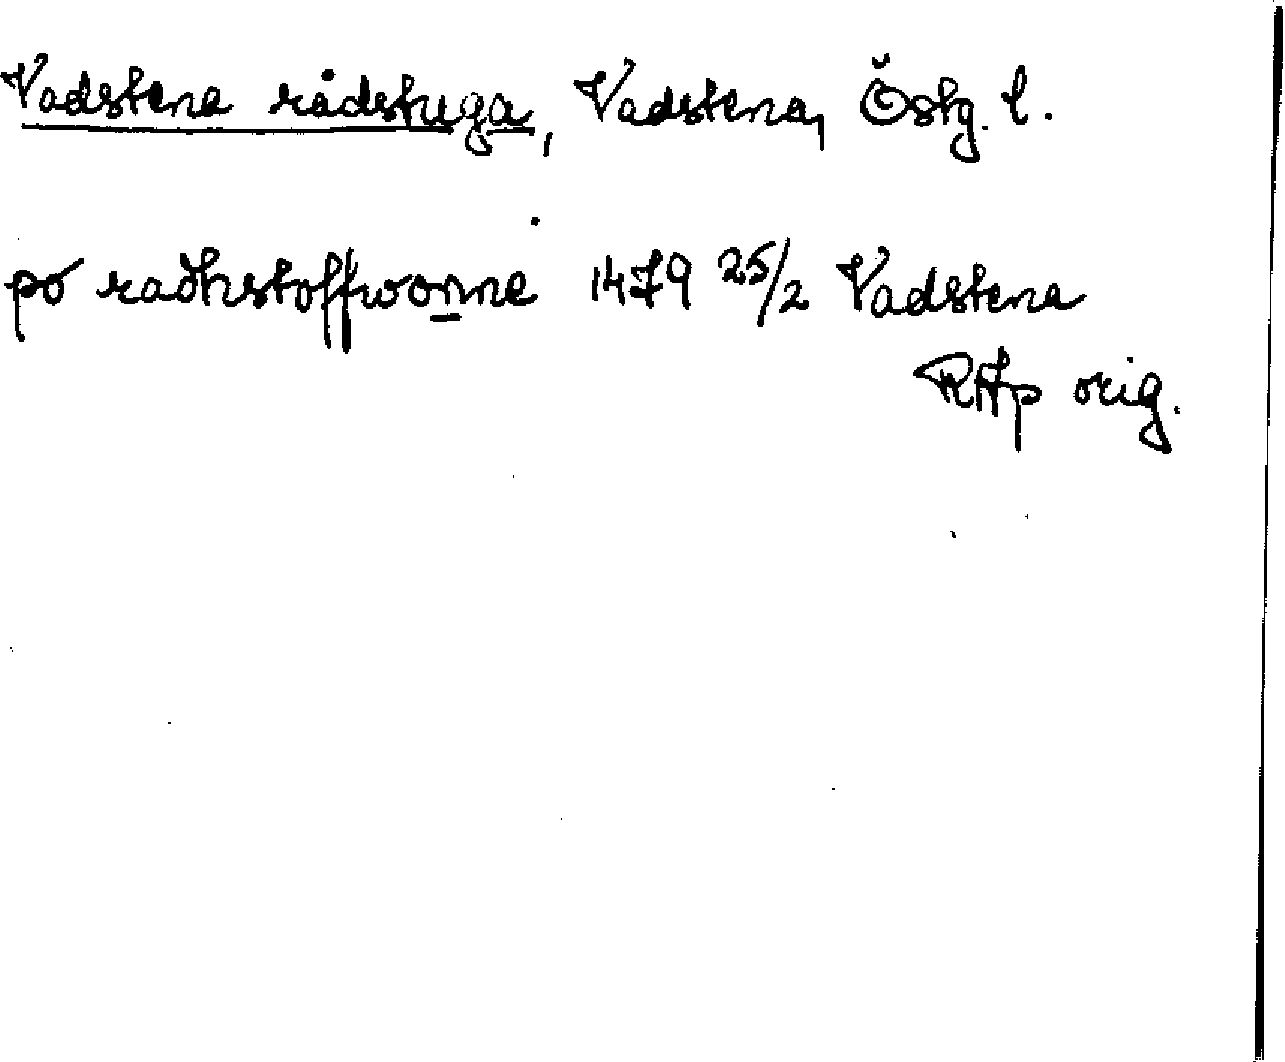 Vadstena rådstuga, Vadstena, Östg. l.
po radhstoffwonne 1479 25/2 Vadstena
RAp orig.